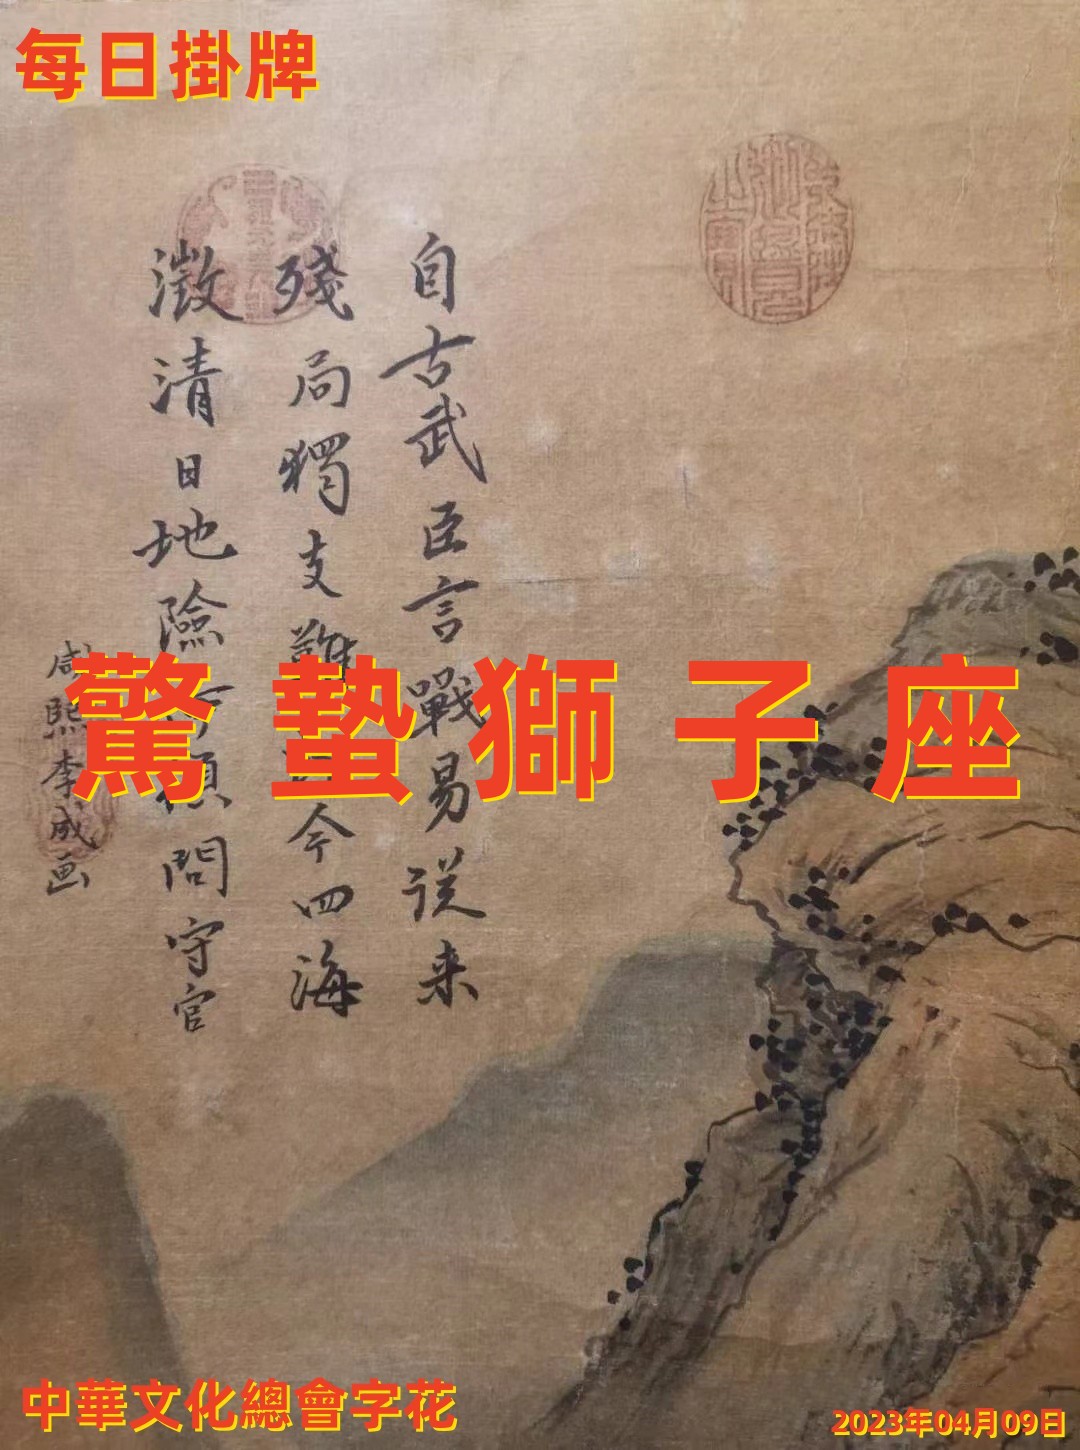 每日掛牌
自古武臣言戰易误来
殘局獨支難今四海
澂清日地險須問守官
咸熙李成画
驚蟄獅子座
中華文化總會字花
2023年04月09日